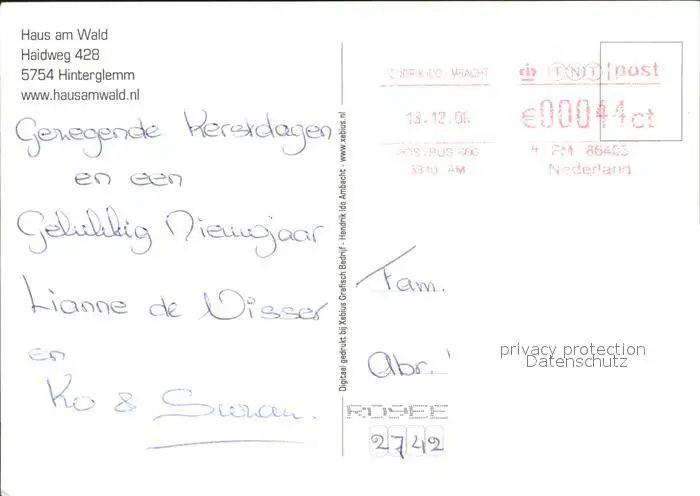 Haus am Wald
Haidweg 428
5754 Hinterglemm
www.hausamwald.nl
Gezegende Kerstdagen
en een
Gelukkig Nieuwjaar
Lianne de Visser
en
Ko & Suzan.
Digitaal gedrukt bij Xebius Grafisch Bedrijf - Hendrik Ido Ambacht - www.xebius.nl
TNT post
€00044ct
POSTBUS
3340 AM
Nederland
Fam.
Abr.
privacy protection
Datenschutz
2742